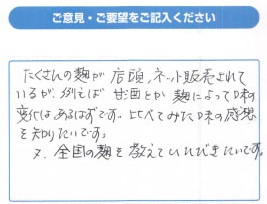 ご意見・ご要望をご記入ください
たくさんの麹が店頭、ネット販売されて
いるが、例えば 甘酒とか 麹によって味の
変化はあるはずです。比べてみた味の感想
を知りたいです。
又、全国の麹を教えていただきたいです。